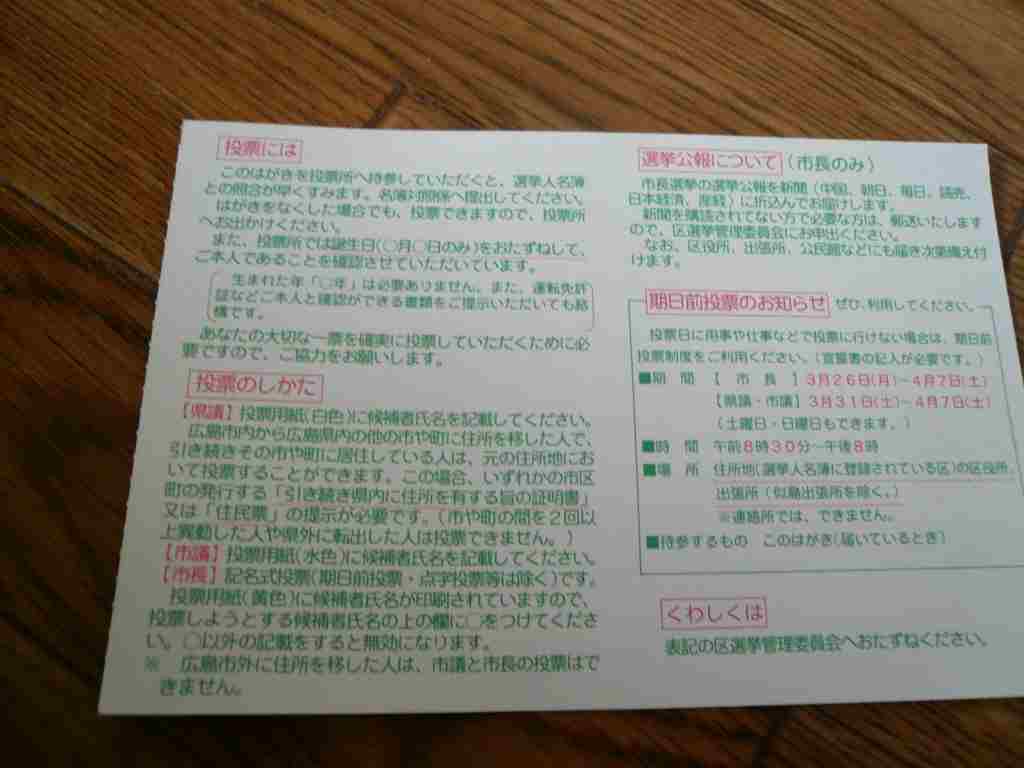 投票には
このはがきを投票所へ持参していただくと、選挙人名簿
との照合が早くすみます。名簿対照係へ提出してください。
はがきをなくした場合でも、投票できますので、投票所
へお出かけください。
また、投票所では誕生日(○月○日のみ)をおたずねして、
ご本人であることを確認させていただいています。
生まれた年「○年」は必要ありません。また、運転免許
証などご本人と確認ができる書類をご提示いただいても結
構です。
あなたの大切な一票を確実に投票していただくために必
要ですので、ご協力をお願いします。
投票のしかた
【県議】投票用紙(白色)に候補者氏名を記載してください。
広島市内から広島県内の他の市や町に住所を移した人で、
引き続きその市や町に居住している人は、元の住所地にお
いて投票することができます。この場合、いずれかの市区
町の発行する「引き続き県内に住所を有する旨の証明書」
又は「住民票」の提示が必要です。(市や町の間を2回以
上異動した人や県外に転出した人は投票できません。)
【市議】投票用紙(水色)に候補者氏名を記載してください。
【市長】記名式投票(期日前投票・点字投票等は除く)です。
投票用紙(黄色)に候補者氏名が印刷されていますので、
投票しようとする候補者氏名の上の欄に○をつけてくださ
い。○以外の記載をすると無効になります。
※ 広島市外に住所を移した人は、市議と市長の投票はで
きません。
選挙公報について(市長のみ)
市長選挙の選挙公報を新聞(中国、朝日、毎日、読売、
日本経済、産経)に折込んでお届けします。
新聞を購読されてない方で必要な方は、郵送いたします
ので、区選挙管理委員会にお申出ください。
なお、区役所、出張所、公民館などにも届き次第備え付
けます。
期日前投票のお知らせ ぜひ、利用してください。
投票日に用事や仕事などで投票に行けない場合は、期日前
投票制度をご利用ください。(宣誓書の記入が必要です。)
■期 間 【 市 長 】3月26日(月)~4月7日(土)
【県議・市議】3月31日(土)~4月7日(土)
(土曜日・日曜日もできます。)
■時 間 午前8時30分~午後8時
■場 所 住所地(選挙人名簿に登録されている区)の区役所、
出張所(似島出張所を除く。)
※連絡所では、できません。
■持参するもの このはがき(届いているとき)
くわしくは
表記の区選挙管理委員会へおたずねください。